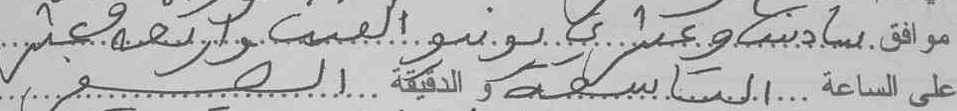 موافق سادس وعشرين يونيو الفين واربعة عشر
على الساعة التاسعة و الدقيقة الصفر